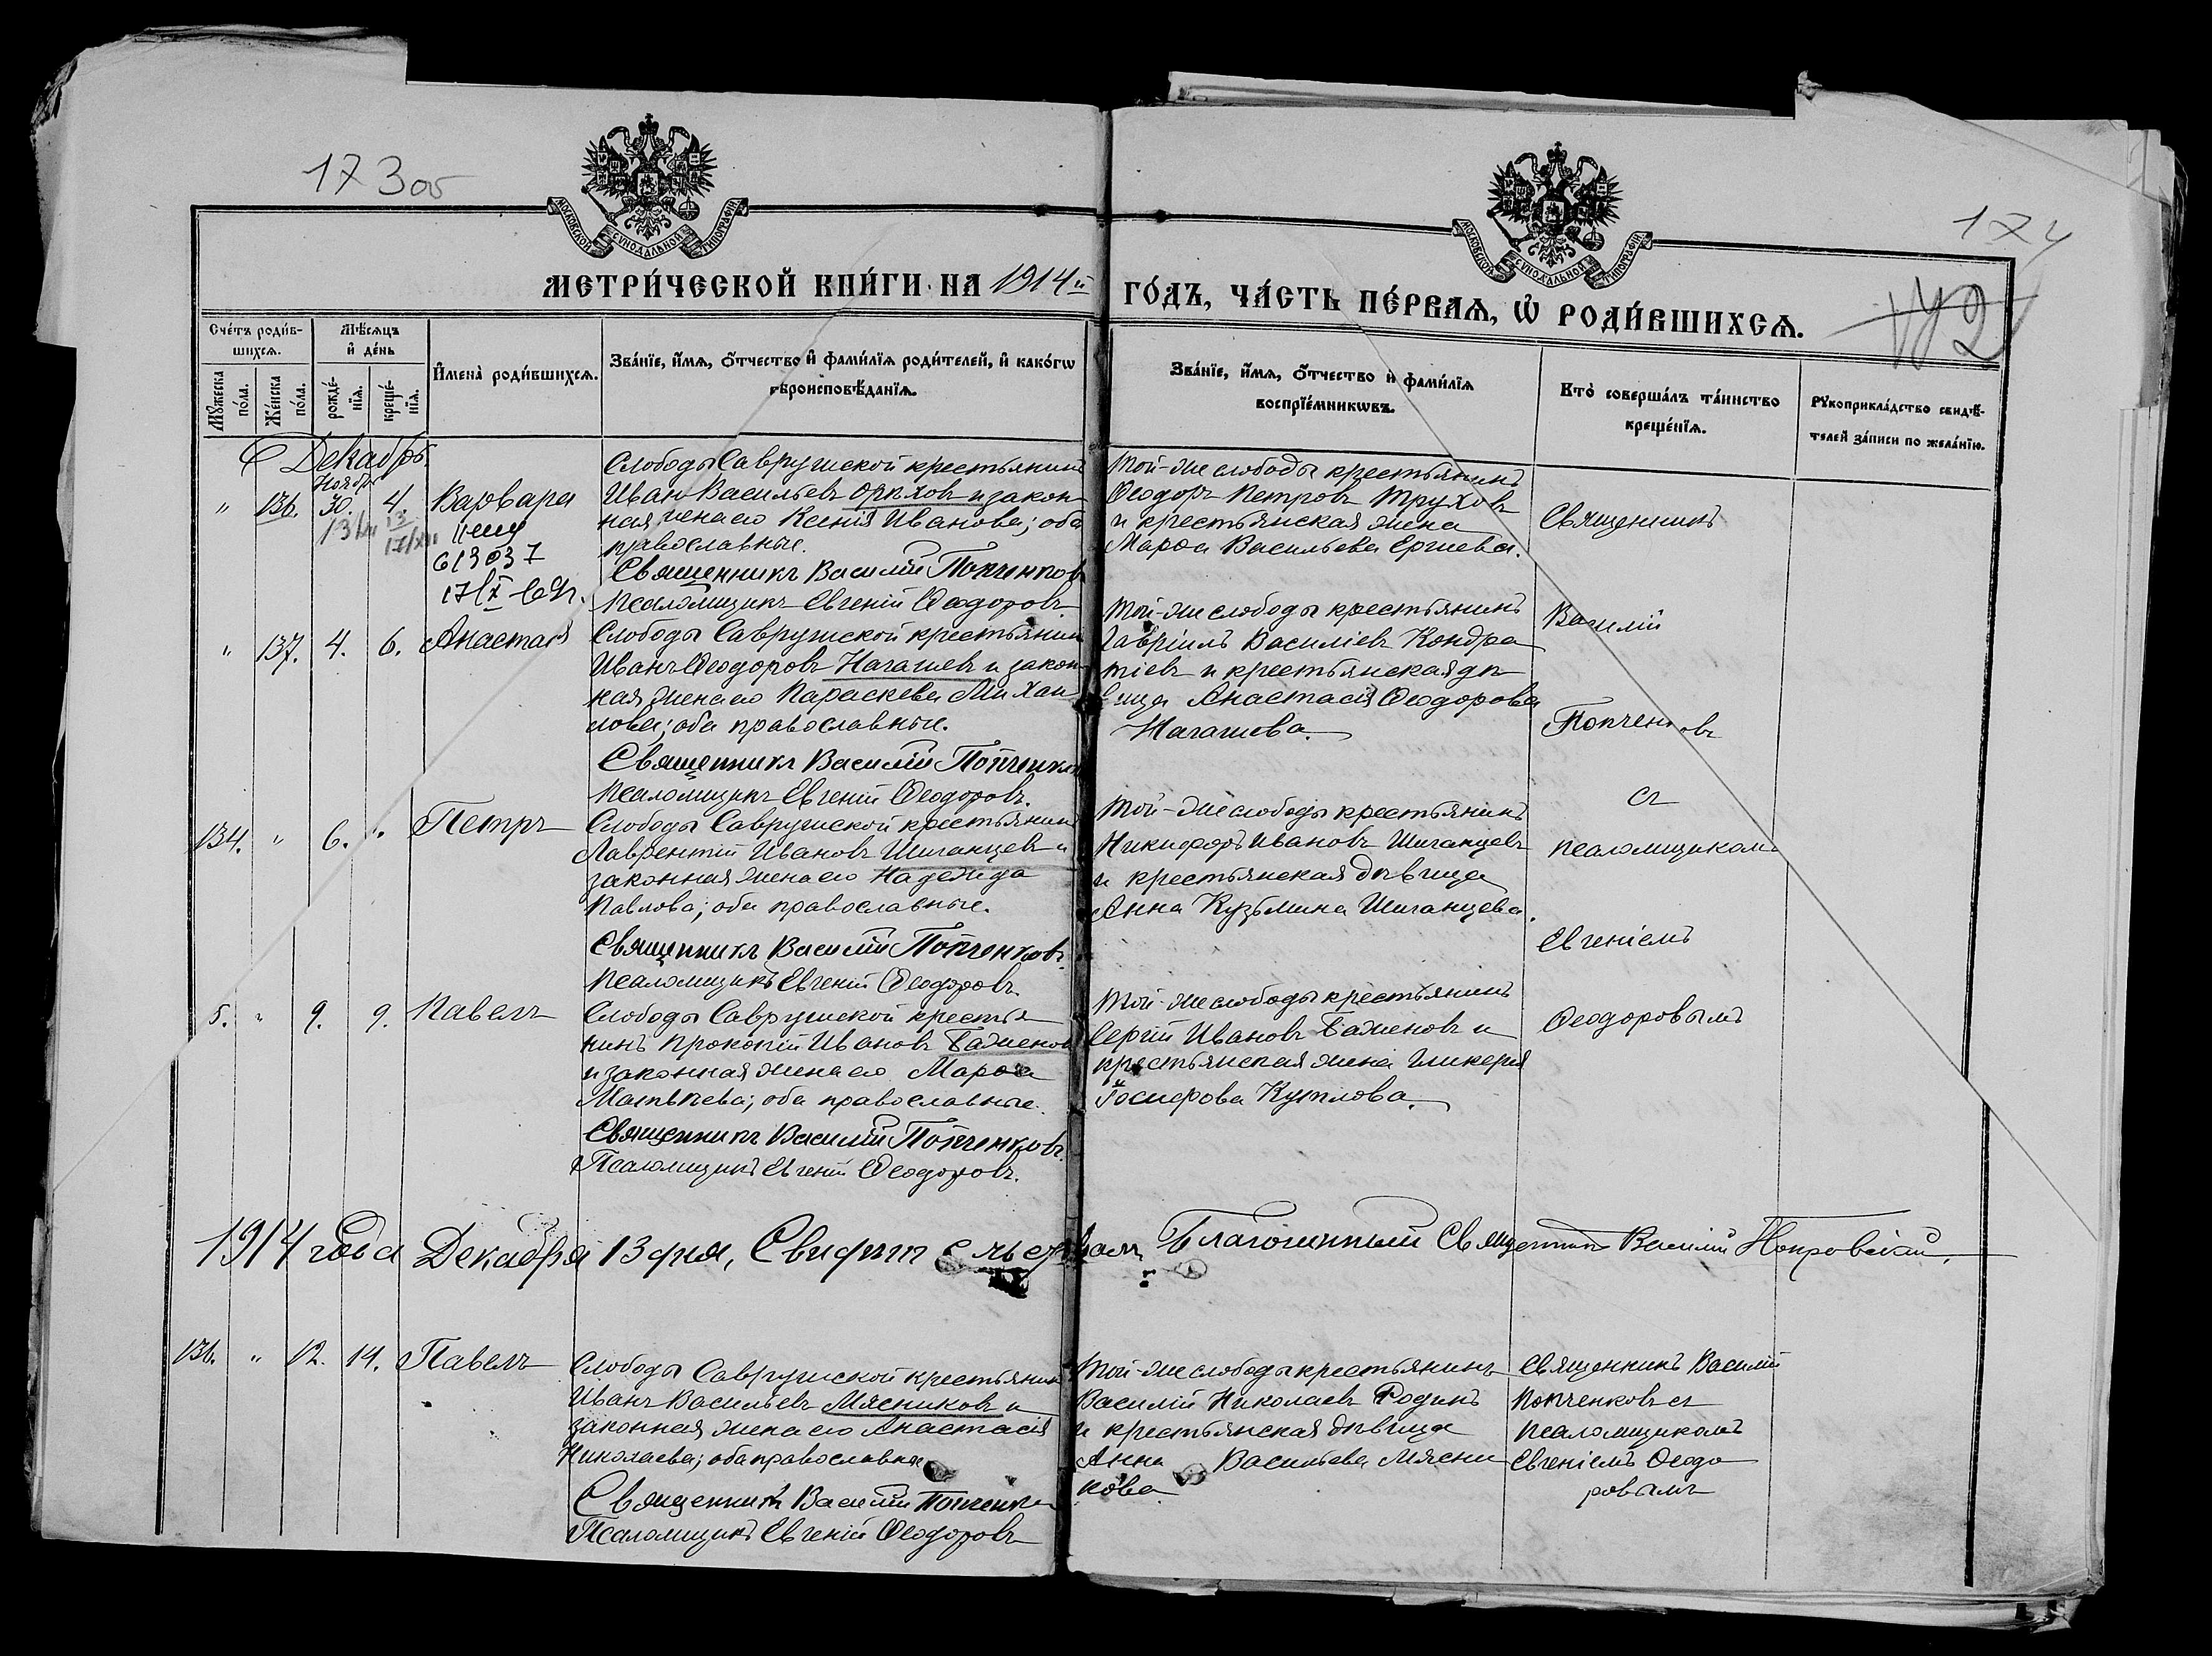 173об
174
МОСКОВСКОЙ СУНОДАЛЬНОЙ ТИПОГРАФІИ
МОСКОВСКОЙ СУНОДАЛЬНОЙ ТИПОГРАФІИ
МЕТРИ́ЧЕСКОЙ КНИ́ГИ НА 1914й
ГО́ДЪ, ЧА́СТЬ ПЕ́РВАЯ, Ѡ҆ РОДИ́ВШИХСЯ.
Сче́тъ роди́в-
шихсѧ.
Мѣ́сѧцъ
и҆ де́нь
Му́жеска
по́ла.
Же́нска
по́ла.
рожде́-
нїѧ.
креще́-
нїѧ.
И҆мена̀ роди́вшихсѧ.
Зва́нїе, и҆́мѧ, ѻ҆́тчество и҆ фами́лїѧ роди́телей, и҆ како́гѡ
вѣроисповѣ́данїѧ.
Зва́нїе, и҆́мѧ, ѻ҆́тчество и҆ фами́лїѧ
воспрїе́мникѡвъ.
Кто̀ соверша́лъ та́инство
креще́нїѧ.
Рꙋкоприкла́дство свидѣ́-
телей за́писи по жела́нїю.
Декабрь
Ноября
" 136. 30. 4. Варвара
613037
Слободы Саврушской крестьянинъ
Иван Васильевъ Орѣхов и закон
ная жена его Ксенія Иванова; оба
православные.
Священникъ Василій Попченков
Псаломщикъ Евгеній Ѳеодоровъ
Той-же слободы крестьянинъ
Ѳеодоръ Петровъ Трухов
и крестьянская жена
Марѳа Васильева Ергиева.
Священникъ
" 137. 4. 6. Анастасія
Слободы Савружской крестьянин
Иванъ Ѳеодоровъ Нагашев и закон
ная жена его Параскева Михаи
лова; оба православные.
Священникъ Василій Попченков
Псаломщикъ Евгеній Ѳеодоровъ.
Той-же слободы крестьянинъ
Гавріилъ Василіев Кондра
тіев и крестьянская дѣ
вица Анастасія Ѳеодорова
Нагашева.
Василій
Попченковъ
134. " 6. " Петръ
Слободы Савружской крестьянин
Лаврентій Ивановъ Шиганцев и
законная жена его Надежда
Павлова; оба православные.
Священникъ Василій Попченковъ.
Псаломщикъ Евгеній Ѳеодоровъ.
Той-же слободы крестьянинъ
Никифоръ Ивановъ Шиганцевъ
и крестьянская дѣвица
Анна Кузьмина Шиганцева.
съ
псаломщиком
Евгеніемъ
5. " 9. 9. Павелъ
Слободы Савружской крестья
нинъ Прокопій Ивановъ Баженов
и законная жена его Марѳа
Матвѣева; оба православные.
Священникъ Василій Попченковъ.
Псаломщикъ Евгеній Ѳеодоровъ.
Той-же слободы крестьянинъ
Сергій Ивановъ Баженовъ и
крестьянская жена Гликерія
Іосифова Кутлова.
Ѳеодоровымъ
1914 года Декабря 13 дня, Благочинный Священник Василій
136. " 12. 14. Павелъ
Слободы Савружской крестьянин
Иванъ Васильевъ Мясниковъ и
законная жена его Анастасія
Николаева; оба православные
Священникъ Василій Попченков
Псаломщикъ Евгеній Ѳеодоровъ
Той-же слободы крестьянинъ
Василій Николаевъ Родинъ
и крестьянская дѣвица
Анна Васильева Мясни
кова
Священникъ Василій
Попченковъ съ
псаломщикомъ
Евгеніемъ Ѳеодо
ровымъ